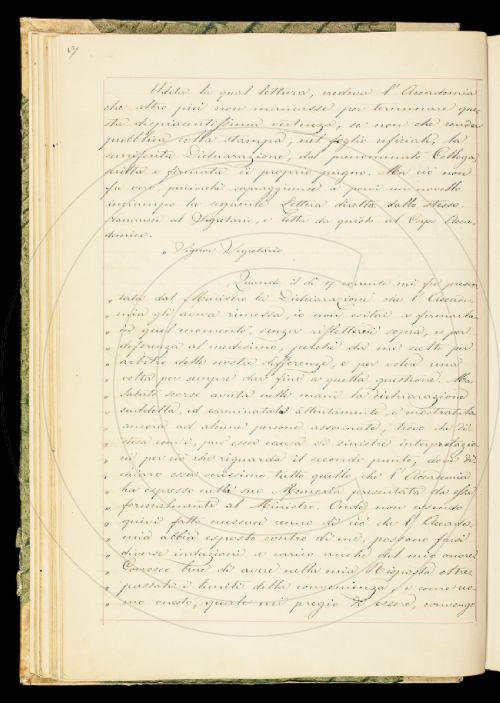 Udita la qual lettura, credeva l'Accademia
che altro più non mancasse per terminare que-
sta dispiacentissima vertenza, se non che render
pubblica colla stampa, nel foglio officiale, la
surriferita Dichiarazione, dal prenominato Collega
scritta e firmata di proprio pugno. Ma ciò non
fu vero, poiché sopraggiunse a porvi un novello
inciampo la seguente Lettera diretta dallo stesso
al Segretario, e letta da questo al Corpo Acca-
demico.
" Signor Segretario
Quando il dì 17 corrente mi fu presen-
" tata dal Ministro la Dichiarazione che l'Accade-
" mia gli aveva rimessa, io non esitai a firmarla
" in quel momento, senza riflettervi sopra, e per
" deferenza al medesimo, perché da me scelto per
" arbitro delle nostre differenze, e per voler una
" volta per sempre dar fine a quella quistione. Ma
" Sabato scorso avuta nelle mani la dichiarazione
" suddetta, ed esaminatala attentamente, e mostratala
" ancora ad alcune persone assennate, trovo che di-
" stesa com'è, può esser causa di sinistre interpretazio-
" ni per ciò che riguarda il secondo punto, dove di-
" chiaro esser verissimo tutto quello che l'Accademia
" ha espresso nella sua Memoria presentata da essa
" formalmente al Ministro. Onde non essendo
" quivi fatto nessun cenno di ciò che l'Accade-
" mia abbia esposto contro di me, possono farsi
" diverse induzioni a carico anche del mio onore.
" Conosco bene di avere nella mia Risposta oltre-
" passati i limiti della convenienza, e come uo-
" mo onesto, quale mi pregio di essere, convengo